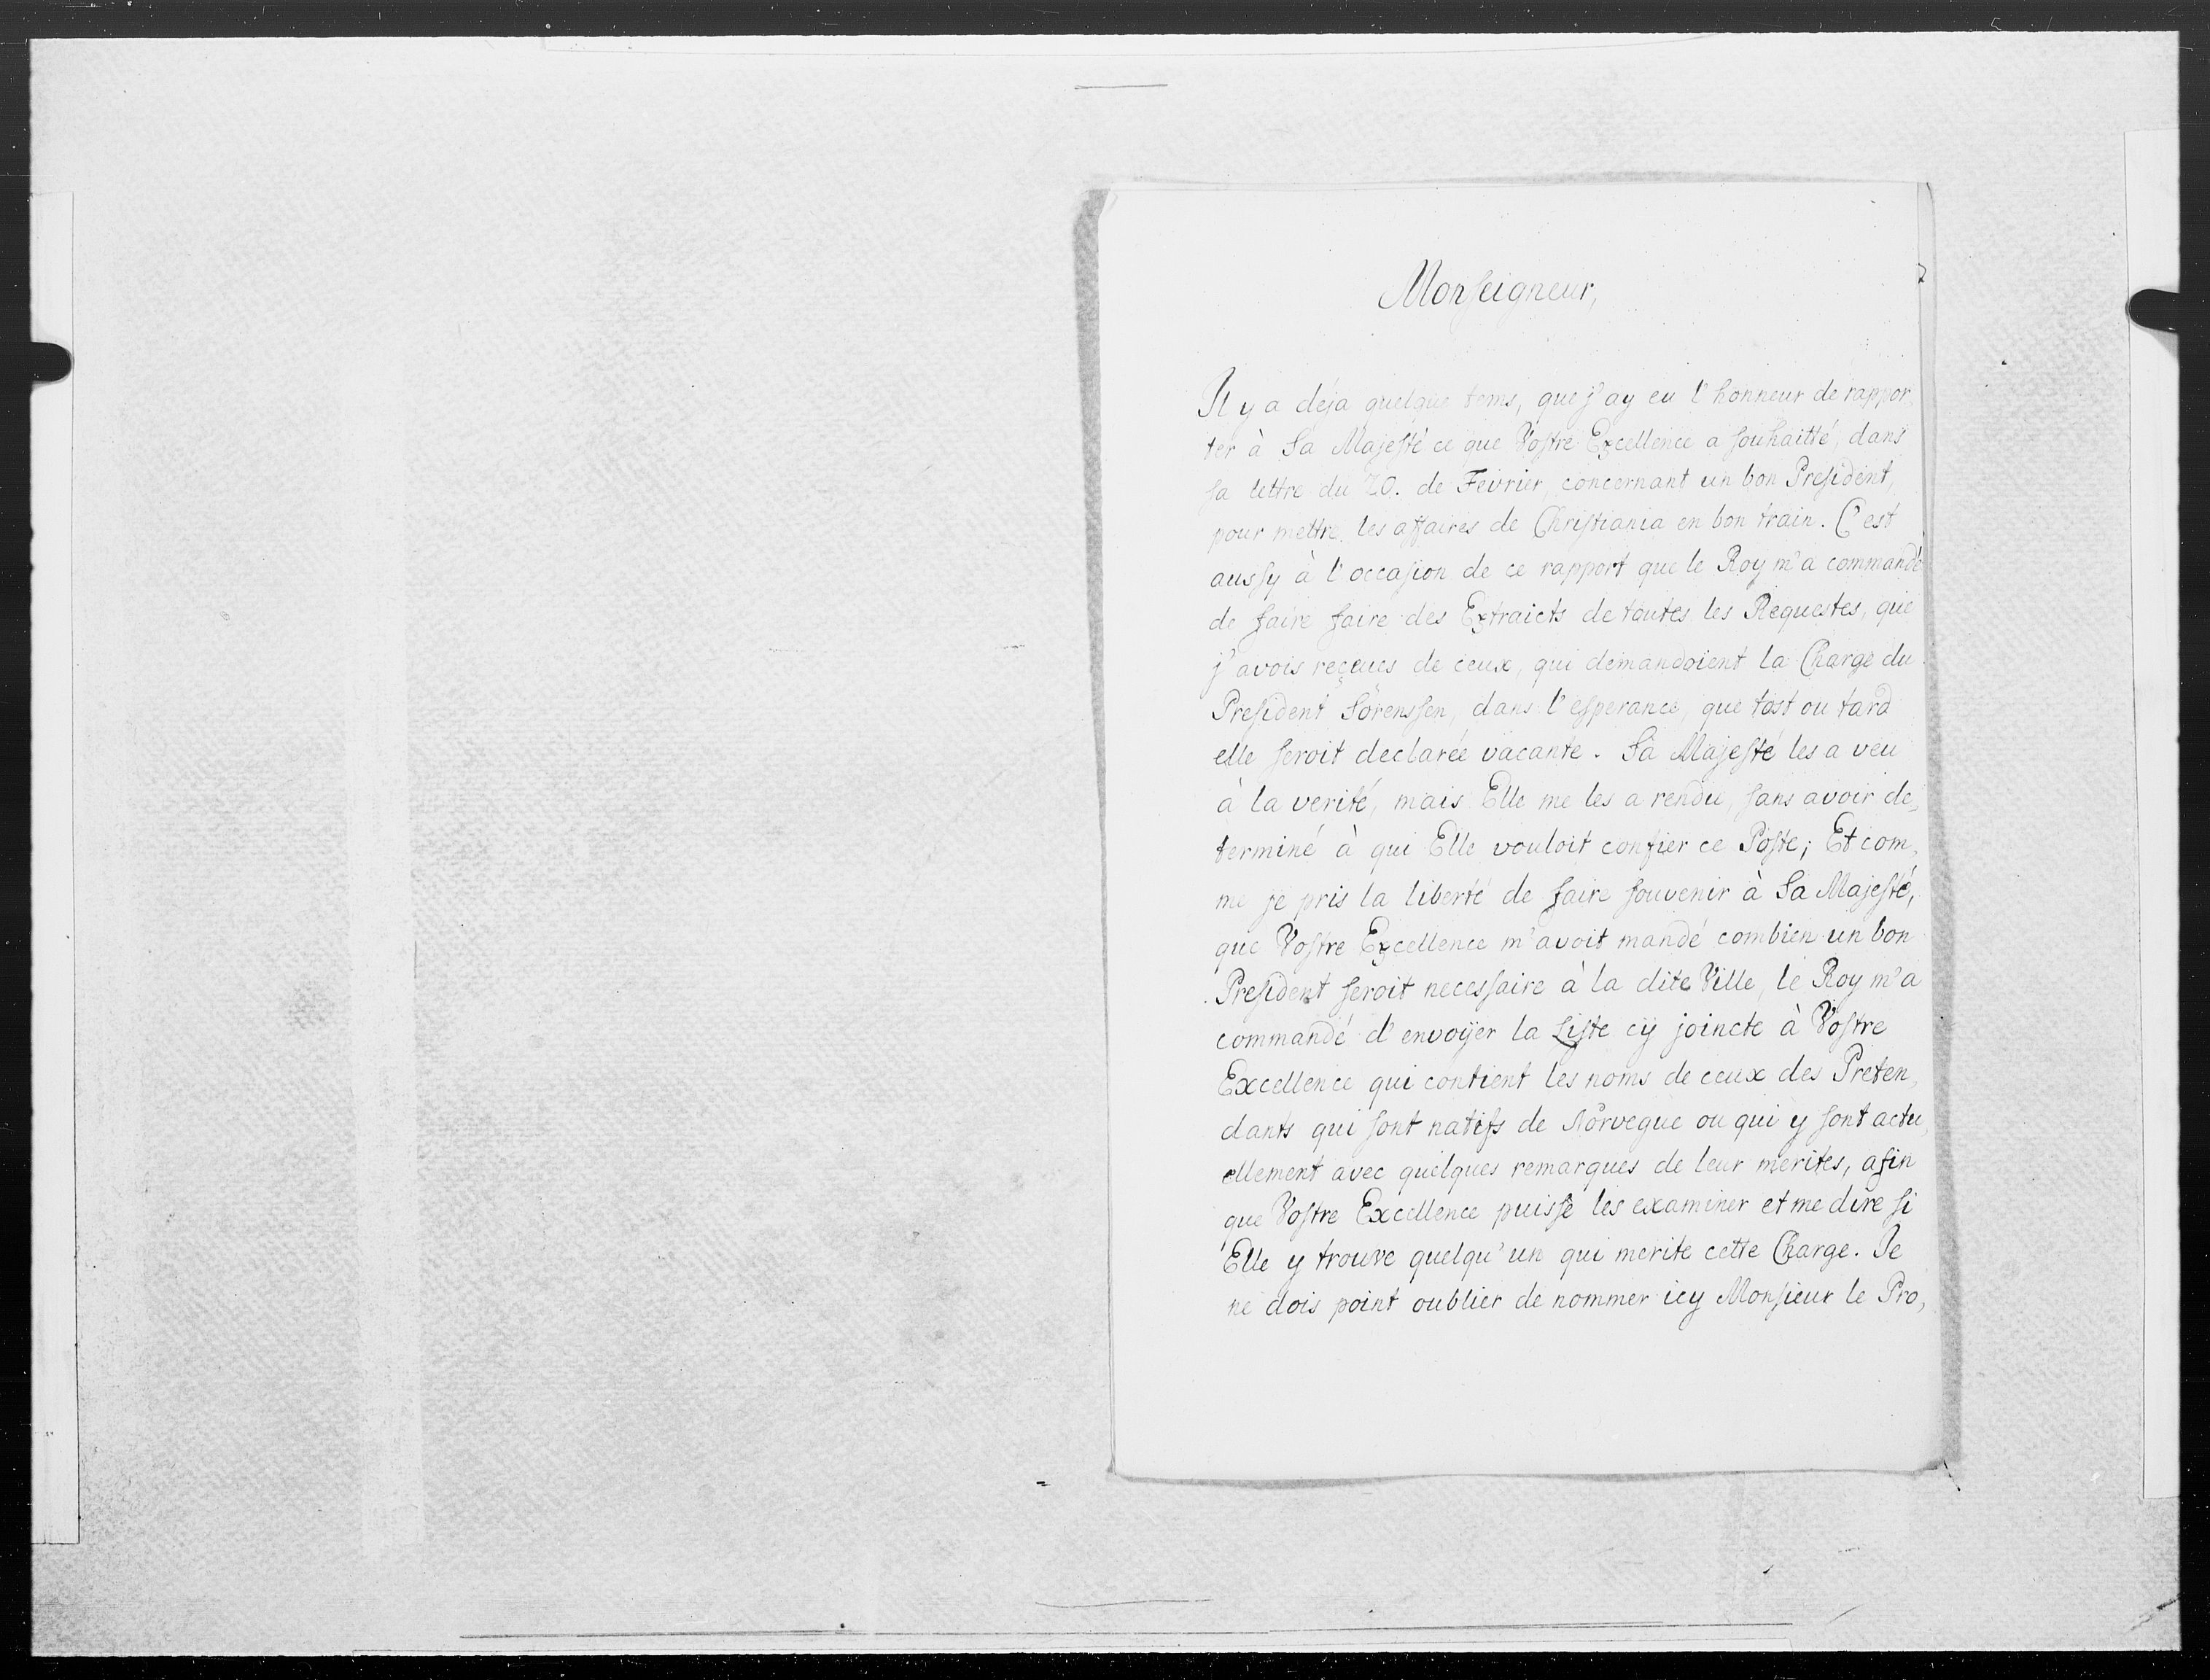 Monseigneur,
Il y a déja quelque tems, que j'ay eu l'honneur de rappor,
ter à Sa Majesté ce que Vostre Excellence a souhaitté, dans
sa lettre du 20. de Fevrier, concernant un bon President,
pour mettre les affaires de Christiania en bon train. C'est
aussy à l'occasion de ce rapport que le Roy m'a commandé
de faire faire des Extraicts de toutes les Requestes, que
j'avois reçeues de ceux, qui demandoient la Charge du
President Sörenssen, dans l'esperance, que tost ou tard
elle seroit declarée vacante. Sa Majesté les a veu
à la verité, mais Elle me les a rendu, sans avoir de,
terminé à qui Elle vouloit confier ce Poste; Et com,
me je pris la liberté de faire souvenir à Sa Majesté,
que Vostre Excellence m'avoit mandé combien un bon
President seroit necessaire à la dite Ville, le Roy m'a
commandé d'envoÿer la Liste cÿ joincte à Vostre
Excellence qui contient les noms de ceux des Preten,
dants qui sont natifs de Norvegue ou qui y sont actu,
ellement avec quelques remarques de leur merites, afin
que Vostre Excellence puisse les examiner et me dire si
Elle y trouve quelqu'un qui merite cette Charge. Je
ne dois point oublier de nommer icy Monsieur le Pro,